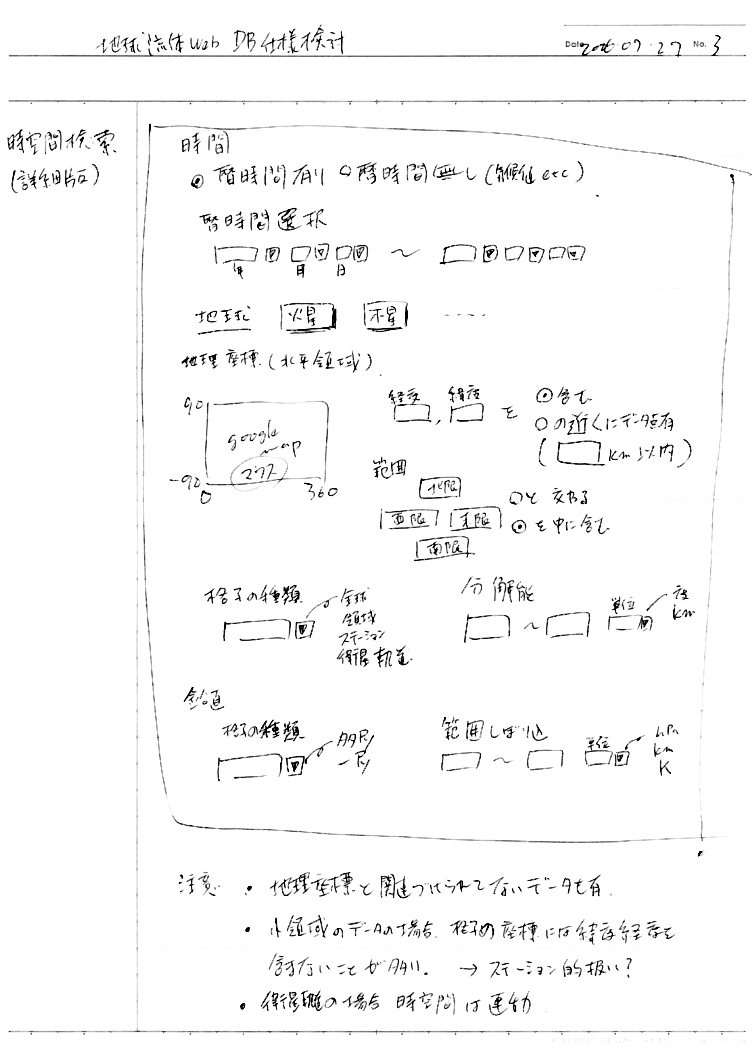 地球流体Web DB仕様検討
Date 2006・07・27 No. 3
時空間検索
(詳細版)
時間
暦時間有り 暦時間無し(気候値 etc)
暦時間選択
年 月 日 ～
地球 火星 木星 ‥‥
地理座標(水平領域)
90
-90
0 360
google map
マウス
経度, 緯度 を
含む
の近くにデータ点有
( km以内)
範囲
北限
西限 東限
南限
と交わる
を中に含む
格子の種類
全球
領域
ステーション
衛星軌道
分解能
～ 単位
度
km
鉛直
格子の種類
多層
一層
範囲しぼり込
～ 単位
hPa
km
K
注意
・地理座標と関連づけられてないデータも有.
・小領域のデータの場合、格子点座標には緯度経度を
含まないことが多い. → ステーション的扱い?
・衛星の場合 時空間は連動